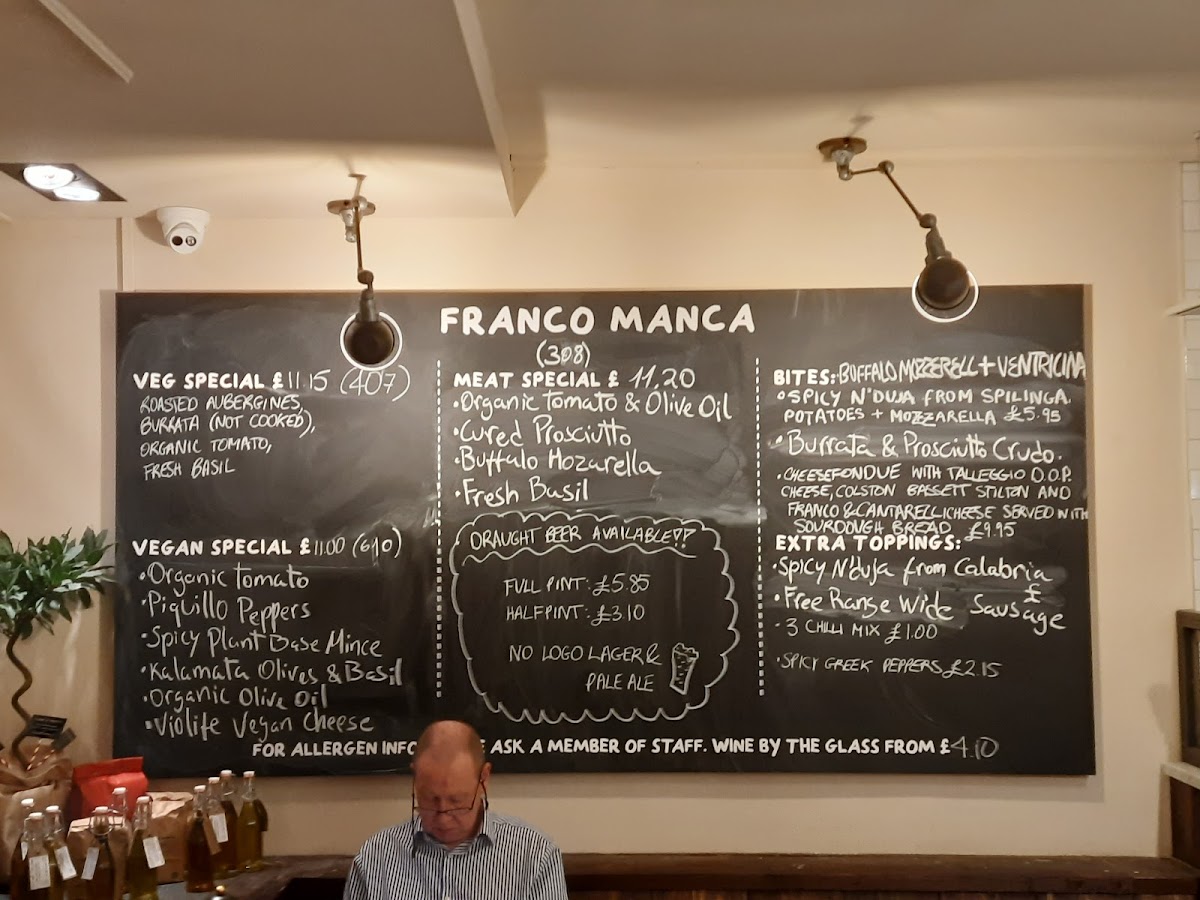 FRANCO MANCA
VEG SPECIAL £11.15 (407)
ROASTED AUBERGINES,
BURRATA (NOT COOKED),
ORGANIC TOMATO,
FRESH BASIL
VEGAN SPECIAL £11.00 (610)
•Organic tomato
•Piquillo Peppers
•Spicy Plant Base Mince
•Kalamata Olives & Basil
•Organic Olive Oil
•Violife Vegan Cheese
(308)
MEAT SPECIAL £ 11.20
•Organic tomato & Olive Oil
•Cured Prosciutto
•Buffalo Mozarella
•Fresh Basil
DRAUGHT BEER AVAILABLE!!
FULL PINT: £5.85
HALF PINT: £3.10
NO LOGO LAGER &
PALE ALE
BITES:•BUFFALO MOZZERELL + VENTRICINA
•SPICY N'DUJA FROM SPILINGA.
POTATOES + MOZZARELLA £5.95
•Burrata & Prosciutto Crudo.
•CHEESEFONDUE WITH TALLEGGIO D.O.P.
CHEESE, COLSTON BASSETT STILTON AND
FRANCO & CANTARELLI CHEESE SERVED WITH
SOURDOUGH BREAD £9.95
EXTRA TOPPINGS:
•Spicy N'duja from Calabria
£
•Free Range Wide Sausage
•3 CHILLI MIX £1.00
•SPICY GREEK PEPPERS £2.15
FOR ALLERGEN INFO E ASK A MEMBER OF STAFF. WINE BY THE GLASS FROM £4.10